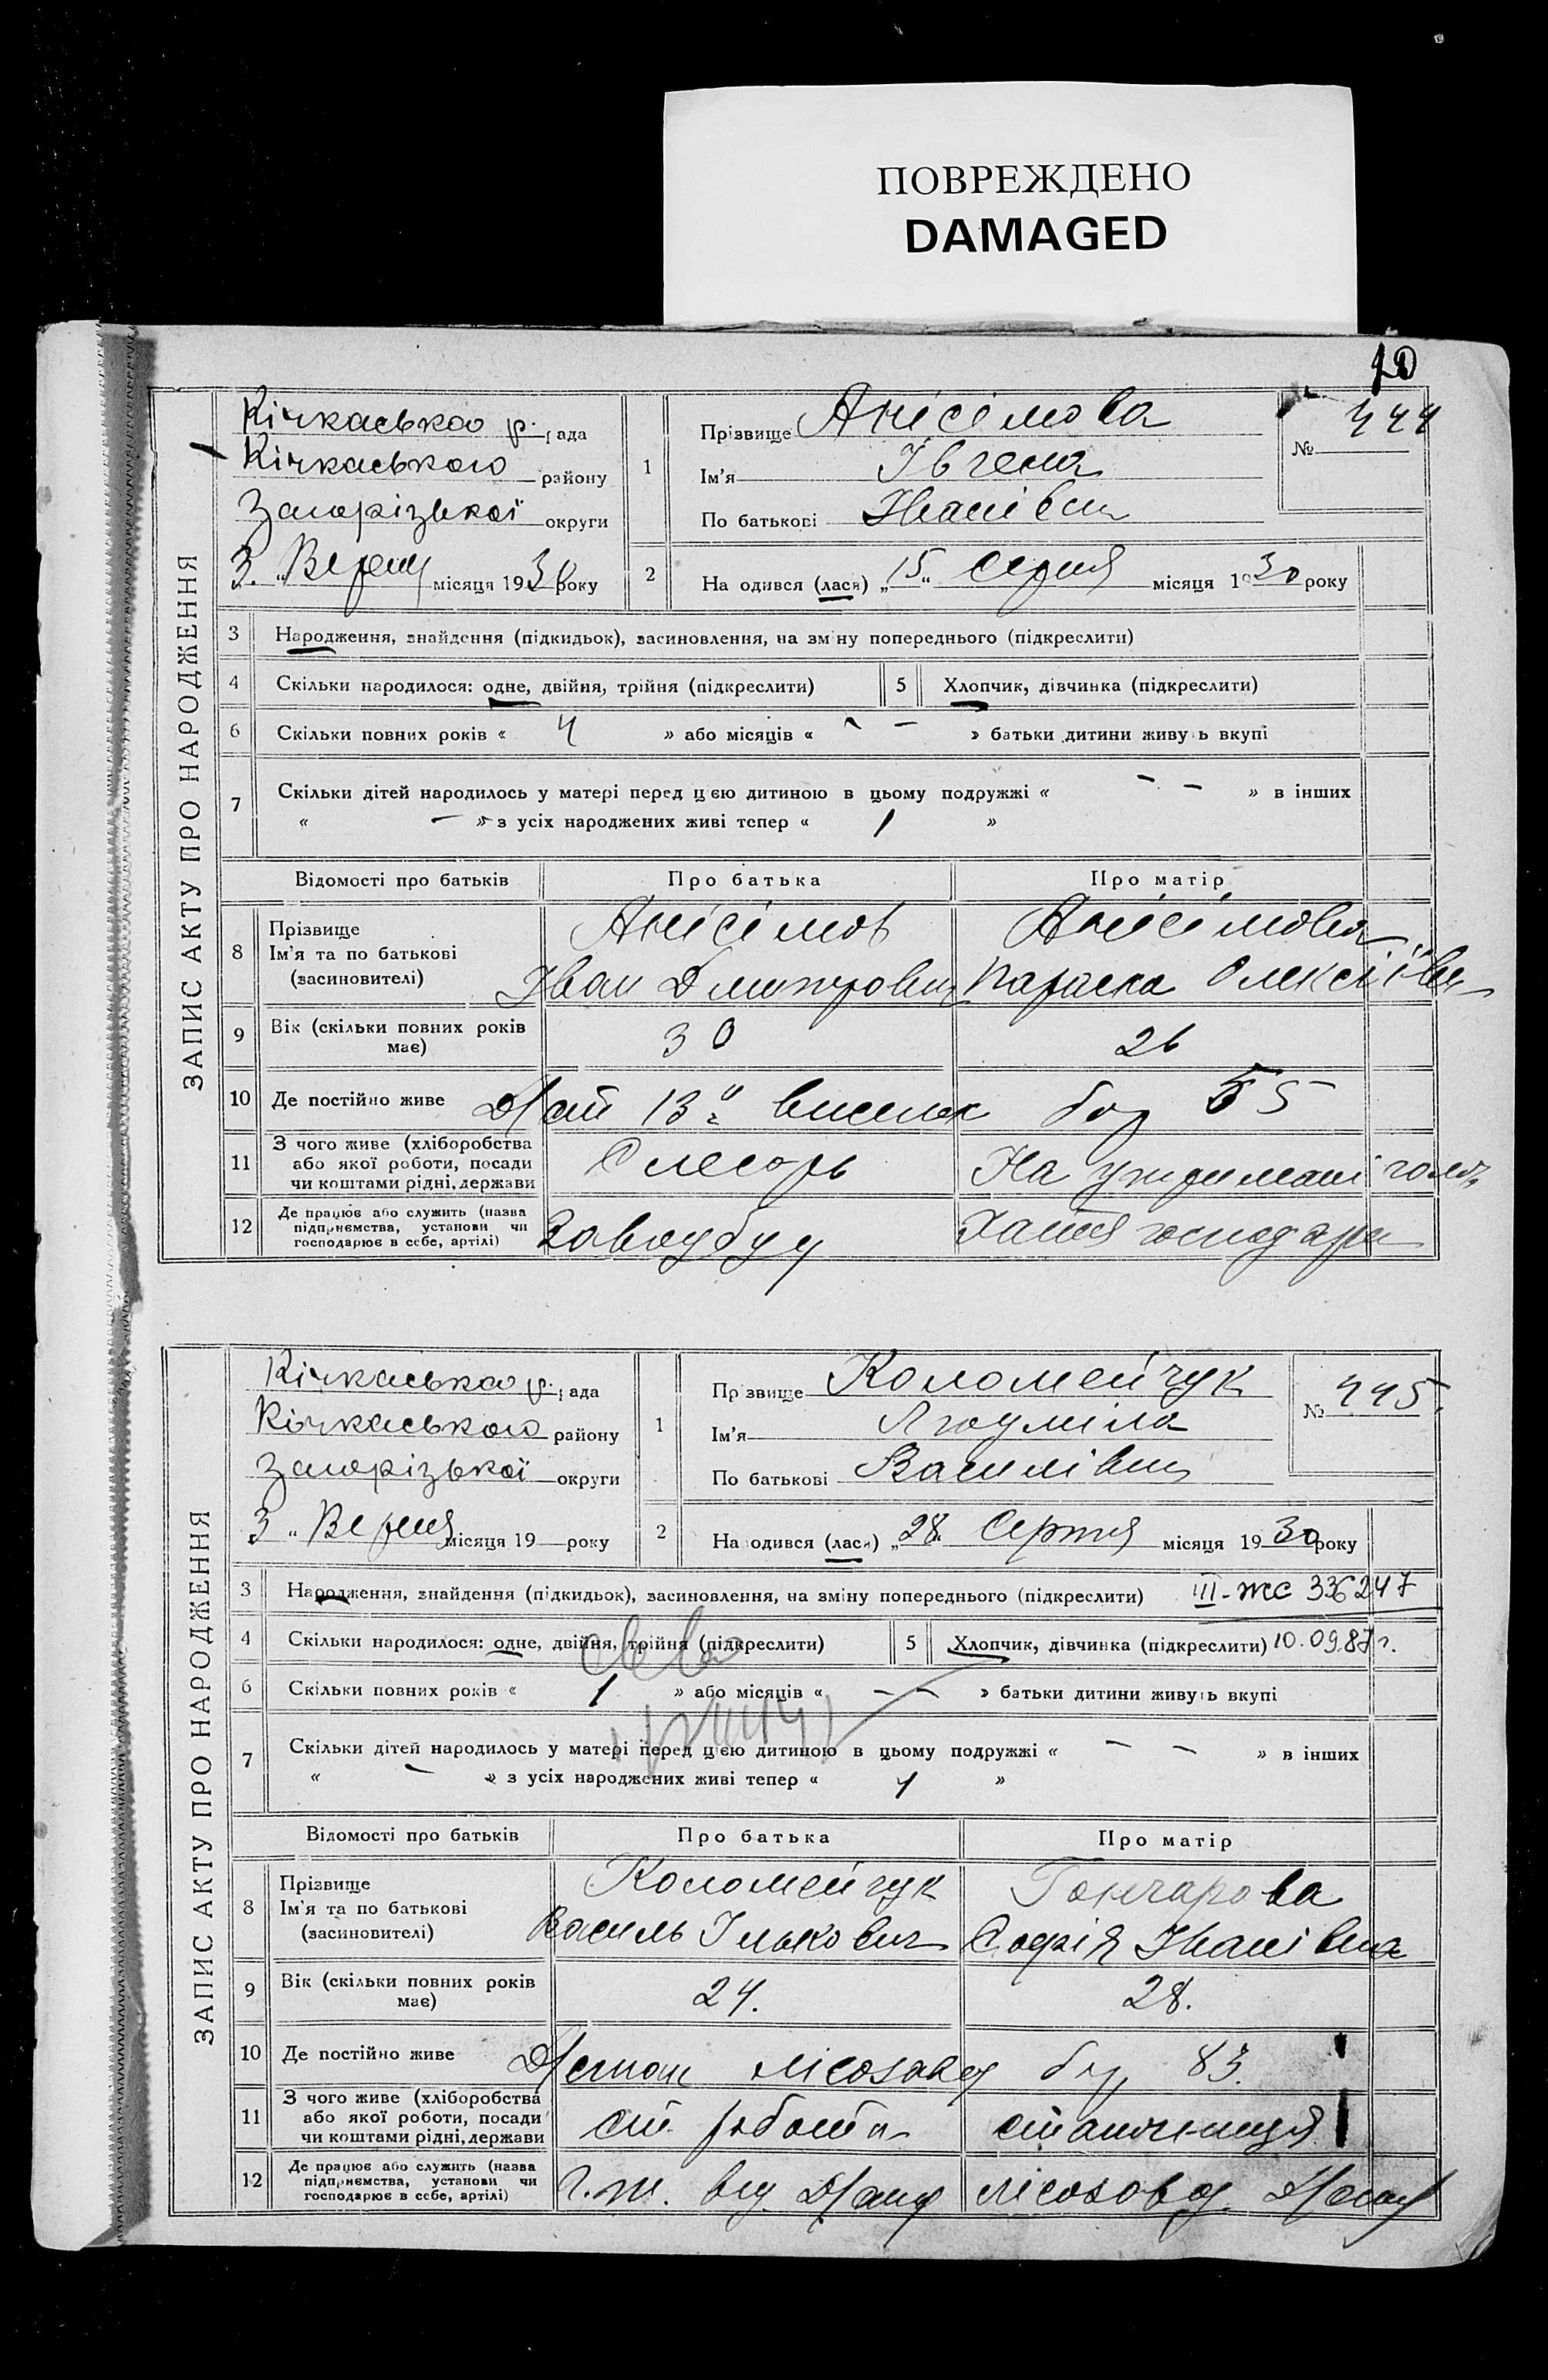 ПОВРЕЖДЕНО
DAMAGED
ЗАПИС АКТУ ПРО НАРОДЖЕННЯ
Кічкаська р. рада
Кічкаського району
Запорізької округи
3. „ місяця 1930 року
1
Прізвище Анісімова
Ім'я Івгена
По батькові Іванівна
№ 444
2
На одився (лася) „15“ Серпня місяця 1930 року
3 Народження, знайдення (підкидьок), засиновлення, на зміну попереднього (підкреслити)
4 Скільки народилося: одне, двійня, трійня (підкреслити) 5 Хлопчик, дівчинка (підкреслити)
6 Скільки повних років « 4 » або місяців « – » батьки дитини живуть вкупі
7 Скільки дітей народилось у матері перед цією дитиною в цьому подружжі « – – » в інших
« – » з усіх народжених живі тепер « 1 »
Відомості про батьків Про батька Про матір
8 Прізвище
Ім'я та по батькові
(засиновителі)
Анісімов Анісімова
Іван Дмитрович Параска Олексіївн
9 Вік (скільки повних років
має) 30 26
10 Де постійно живе 13 виселок буд 55
11 З чого живе (хліборобства
або якої роботи, посади
чи коштами рідні, держави
Слесорь На
12 Де працює або служить (назва
підприємства, установи чи
господарює в себе, артілі)
Хатня господари
ЗАПИС АКТУ ПРО НАРОДЖЕННЯ
Кічкаська р. рада
Кічкаського району
Запорізької округи
3 „ Версня місяця 19 року
1
Прізвище Коломейчук
Ім'я Людміла
По батькові Василівна
№ 445.
2
На одився (лася) „28“ Серпня місяця 1930 року
3 Народження, знайдення (підкидьок), засиновлення, на зміну попереднього (підкреслити) III-ЖС 336247
4 Скільки народилося: одне, двійня, трійня (підкреслити) 5 Хлопчик, дівчинка (підкреслити) 10.09.87г.
6 Скільки повних років « 1 » або місяців « – – » батьки дитини живуть вкупі
7 Скільки дітей народилось у матері перед цією дитиною в цьому подружжі « – – » в інших
« – » з усіх народжених живі тепер « 1 »
Відомості про батьків Про батька Про матір
8 Прізвище
Ім'я та по батькові
(засиновителі)
Коломейчук Гончарова
Василь Ількович Софія Іванівна
9 Вік (скільки повних років
має) 24. 28.
10 Де постійно живе лісозавод буд 83.
11 З чого живе (хліборобства
або якої роботи, посади
чи коштами рідні, держави
ст. робота
12 Де працює або служить (назва
підприємства, установи чи
господарює в себе, артілі)
лісозавод